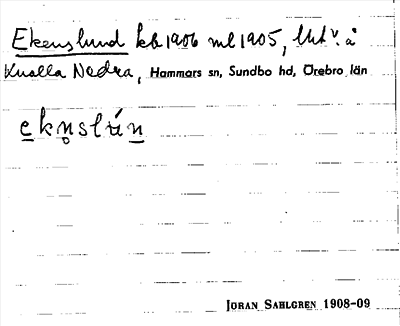 Ekenslund kb 1906 ml 1905, lht v. å
Knalla Nedra, Hammars sn, Sundbo hd, Örebro län
ekn̥slún
JÖRAN SAHLGREN 1908-09